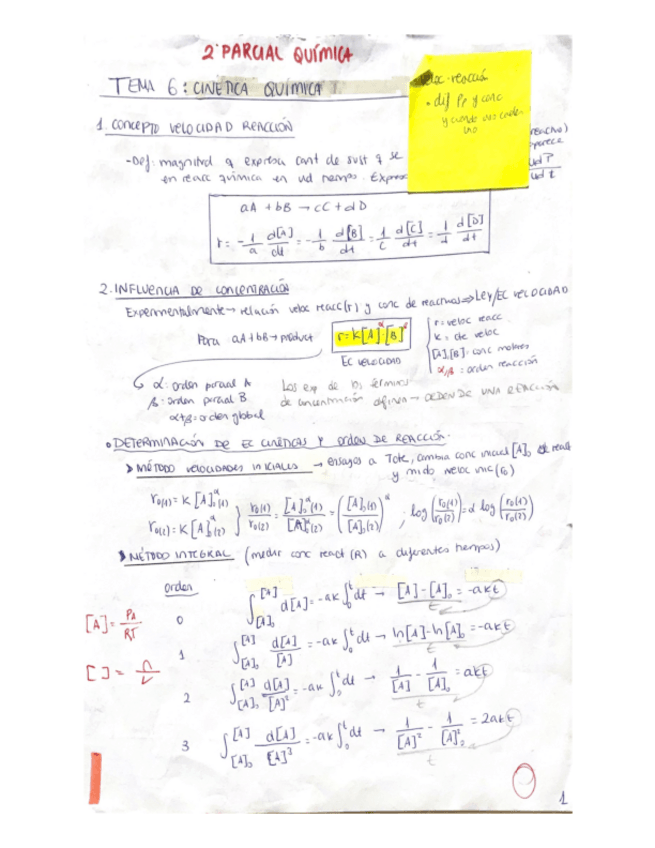 2º PARCIAL QUÍMICA
TEMA 6: CINÉTICA QUÍMICA
veloc. reacción
• dif Pr y conc
y cuando uso
uno
1. CONCEPTO VELOCIDAD REACCIÓN
- Def: magnitud q expresa cant de sust q se
en reacc química en ud tiempo. Expres
aparece
ud P
ud t
aA + bB → cC + dD
r = -1/a d[A]/dt = -1/b d[B]/dt = 1/c d[C]/dt = 1/d d[D]/dt
2. INFLUENCIA DE CONCENTRACIÓN
Experimentalmente → relación veloc reacc (r) y conc de reactivos ⇒ LEY/EC VELOCIDAD
Para aA + bB → product r = K[A]^α·[B]^β
EC VELOCIDAD
r = veloc reacc.
K = cte veloc
[A],[B]: conc molares
α,β = orden reacción
α: orden parcial A
β: orden parcial B
α+β = orden global
Los exp de los términos
de concentración definen → ORDEN DE UNA REACCIÓN
• DETERMINACIÓN DE EC CINÉTICAS Y ORDEN DE REACCIÓN.
> MÉTODO VELOCIDADES INICIALES → ensayos a Tcte, cambia conc inicial [A]₀ de react
y mido veloc inic (r₀)
r₀(1) = K[A]₀^α(1)
r₀(2) = K[A]₀^α(2)
} r₀(1)/r₀(2) = [A]₀^α(1)/[A]₀^α(2) = ([A]₀(1)/[A]₀(2))^α ; log (r₀(1)/r₀(2)) = α log (r₀(1)/r₀(2))
> MÉTODO INTEGRAL (medir conc react (R) a diferentes tiempos)
orden
0 ∫[A]₀^[A] d[A] = -aK ∫₀^t dt → [A] - [A]₀ = -aKt
t
1 ∫[A]₀^[A] d[A]/[A] = -aK ∫₀^t dt → ln[A] - ln[A]₀ = -aKt
t
2 ∫[A]₀^[A] d[A]/[A]² = -aK ∫₀^t dt → 1/[A] - 1/[A]₀ = aKt
t
3 ∫[A]₀^[A] d[A]/[A]³ = -aK ∫₀^t dt → 1/[A]² - 1/[A]₀² = 2aKt
t
[A] = PA/RT
[ ] = n/V
1